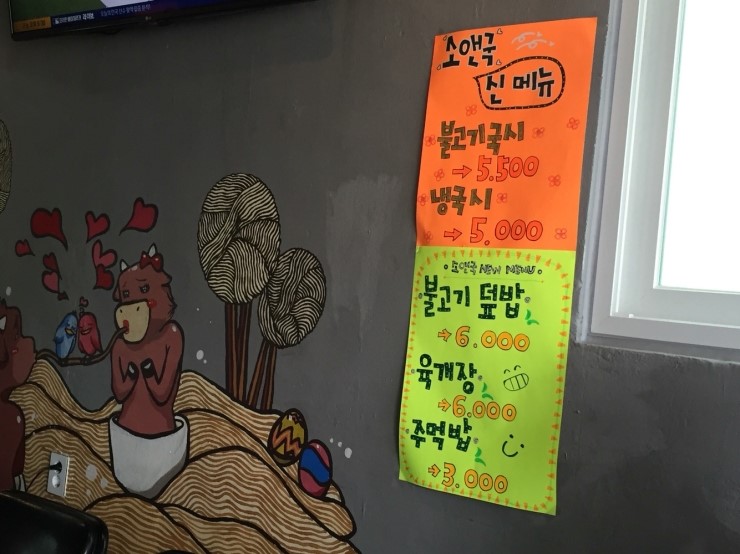 소앤국
신 메뉴
불고기국시
→ 5.500
냉국시
→ 5.000
·소앤국 NEW MENU·
불고기 덮밥
→ 6.000
육개장
→ 6.000
주먹밥
→ 3.000